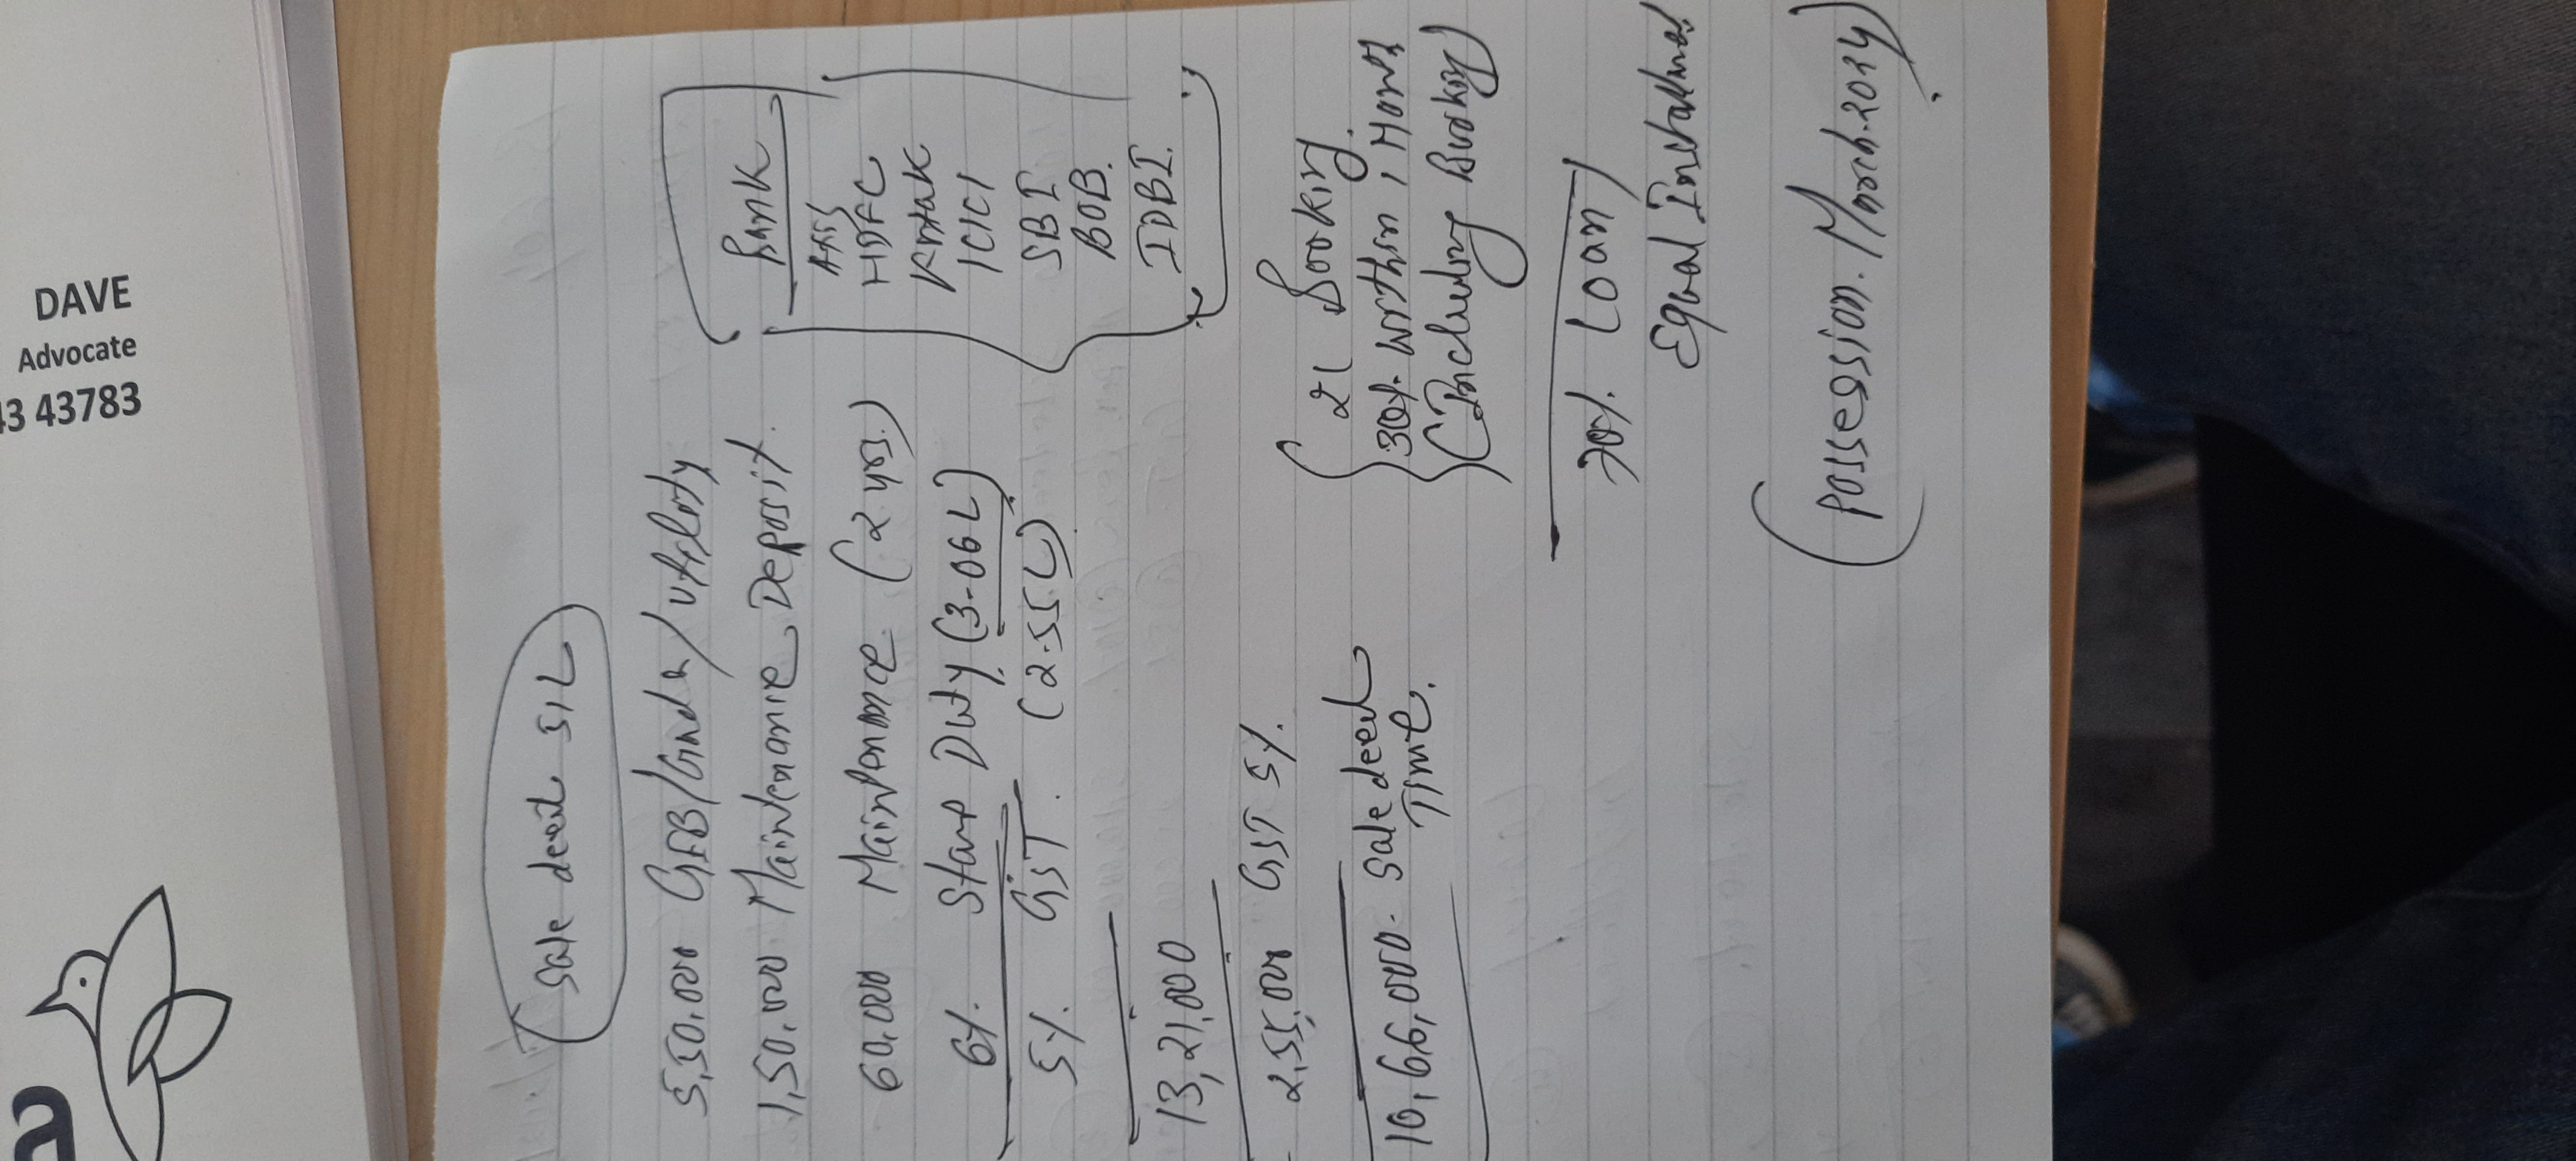 a
DAVE
Advocate
43 43783
Sale deed 51L
5,50,000 GEB/Guda/utility
1,50,000 Maintenance Deposit.
60,000 Maintenance (2 yrs.)
6%. Stamp Duty (3.06L)
5%. GST. (2.55L)
13,21,000
- 2,55,000 GST 5%.
10,66,000- Sale deed
Time.
Bank
Axis
HDFC
Kotak
ICICI
SBI
BOB.
IDBI.
2L Booking.
30%. within 1 Month
(Including Booking)
70%. Loan/
Equal Installment
(Possession. March.2024)